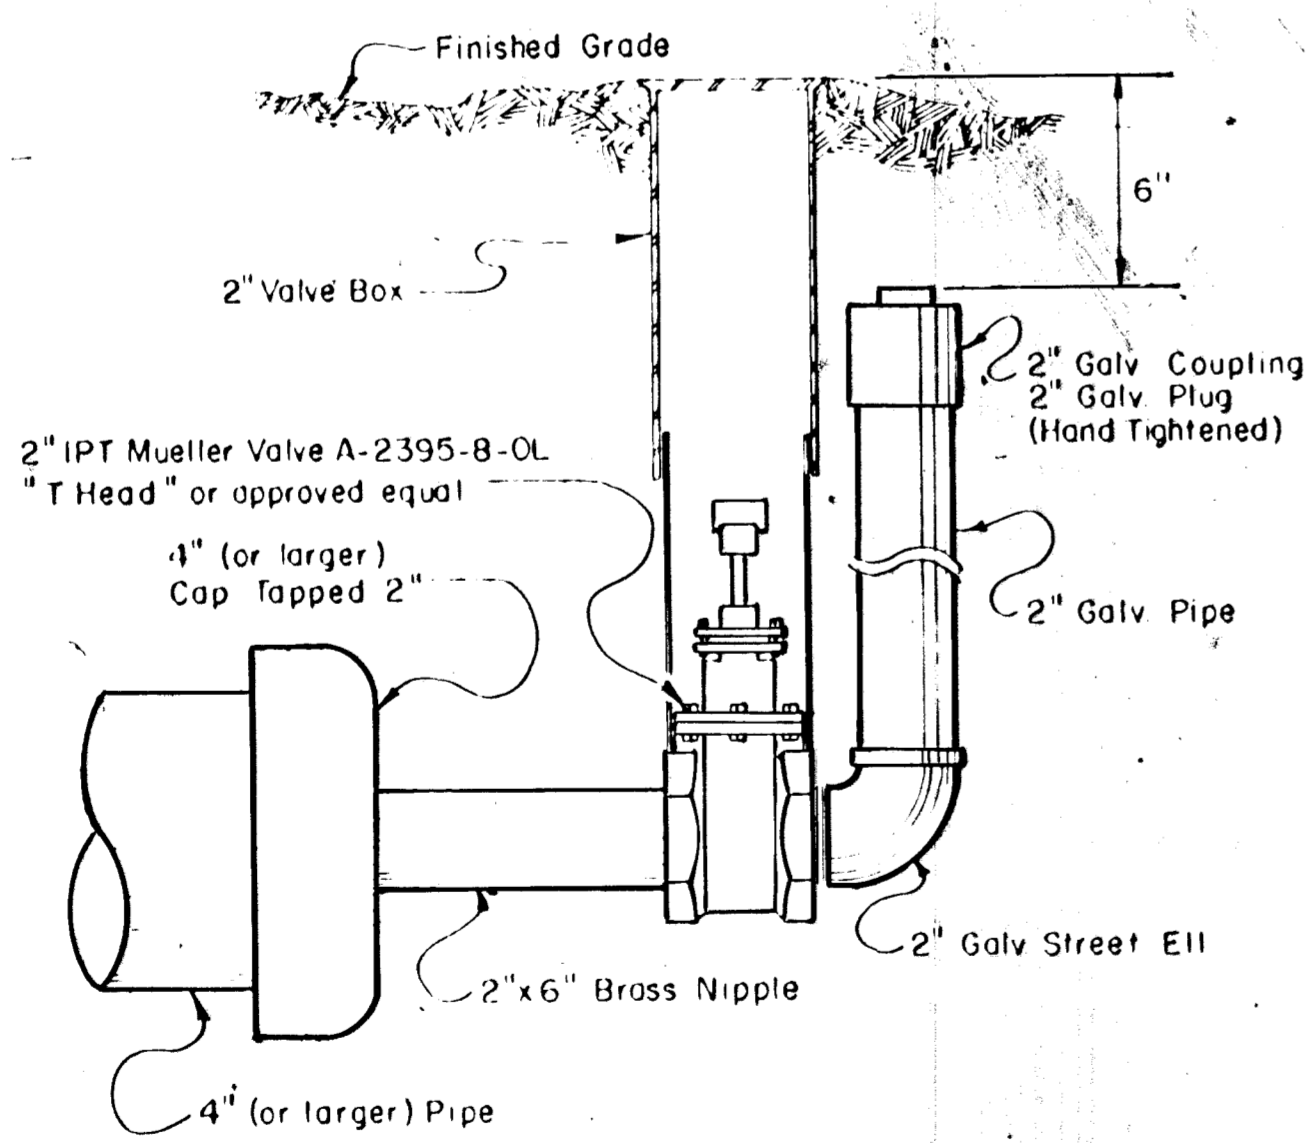 Finished Grade
6"
2" Valve Box
2" Galv Coupling
2" Galv. Plug
(Hand Tightened)
2" IPT Mueller Valve A-2395-8-OL
"T Head" or approved equal
4" (or larger)
Cap Tapped 2"
2" Galv. Pipe
2" Galv Street Ell
2" x 6" Brass Nipple
4" (or larger) Pipe